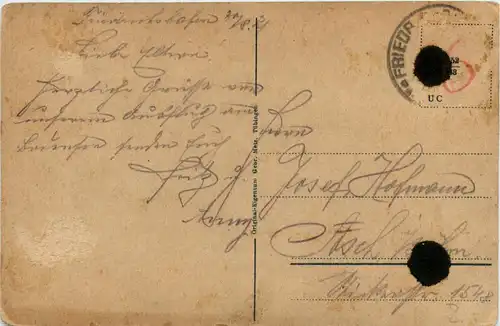 Friedrichshafen 30/8.21
Liebe Eltern
Herzliche Grüsse von
unserem Ausflug am
Bodensee senden Euch
Fritz u.
Anny
Original-Eigentum Gebr. Metz, Tübingen
FRIEDR
UC
Herrn
Josef Hofmann
Asch